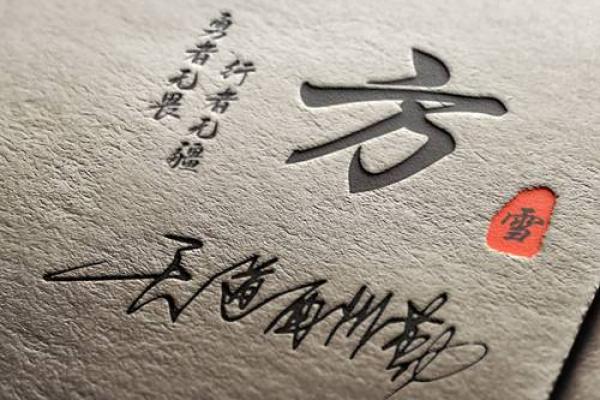 方
雪
行者无疆
勇者无畏
天道酬勤